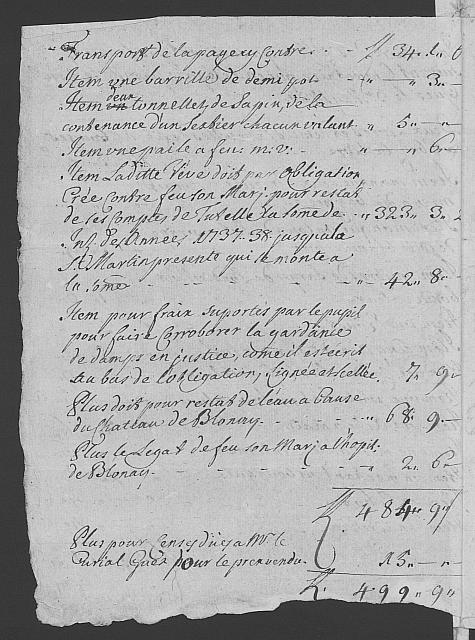 Transport de la page cy Contre. - - ll 34. 1. 6
Item vne barrille de demi pot - - " - " 3. -
Item deux tonnellet, de Sapin, de la
contenance d'un Sesbier chacun valant. " 5 " - "
Item vne paile a feu: m. v: - - " - " 6 -
Item Laditte Veve doit par obligation
Crée Contre feu son Mari. pour restat
de ses Comptes de Tutelle La some de " 323 " 3.
Int. des Années 1737. 38. jusqu'a la
St. Martin presente qui se monte a
la some - - - - 42 " 8 "
Item pour fraix suportes par le pupil
pour faire Corroborer la gardance
de damps en justice, come il est écrit
au bas de l'obligation, Signée et scellée. 7 " 9 -
Plus doit pour restat de l'eau a Cause
du Chateau de Blonay - - - " 68 " 9 -
Plus le Legat de feu son Mari a l'hopit.
de Blonay. - - - - " 2 " 6 -
ll. 484 " 9 "
Plus pour Censes dües a Mr. le
Curial pour le prenvendu. - 15 " - "
ll. 499 " 9 "